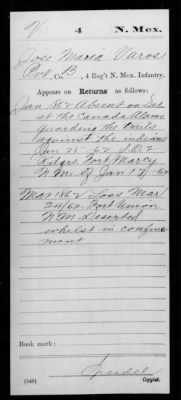 V 4 N. Mex.
Jose Maria Varos
Pvt, Co. B, 4 Reg't N. Mex. Infantry.
Appears on Returns as follows:
Jan 1862 Absent on D.S.
at the Canada Alamos
guarding the trails
against the indians
Jan 21 62 S.O. 2
Hdqrs. Fort Marcy
N.M. of Jan 17/62
Mar 1862 Loss Mar
24/62 Fort Union
N.M. Deserted
whilst in confine
ment
Book mark:
(546) Copyist.